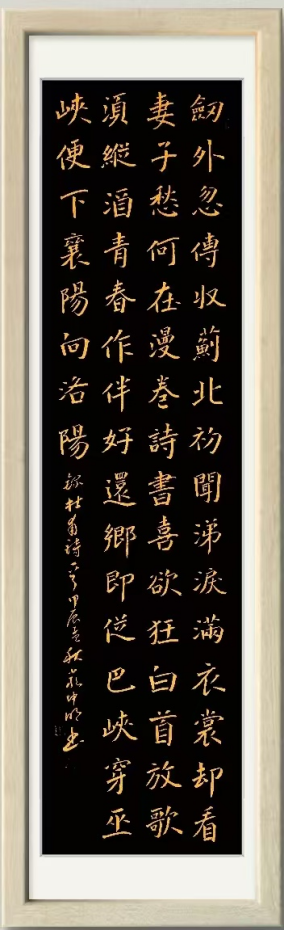 劔外忽傳収薊北初聞涕淚滿衣裳却看
妻子愁何在漫卷詩書喜欲狂白首放歌
湏縱酒青春作伴好還鄉即從巴峽穿巫
峽便下襄陽向洛陽
錄杜甫詩一首甲辰秋書